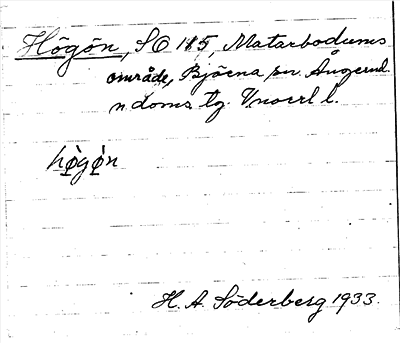 Högön, SO 115, Matarbodums
område, Björna sn. Ångerml.
n doms tg. Vnorrl l.
hògòn
H. A. Söderberg 1933.